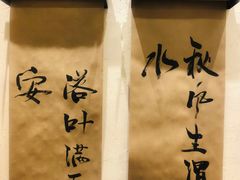 秋风生渭
水
落叶满
安